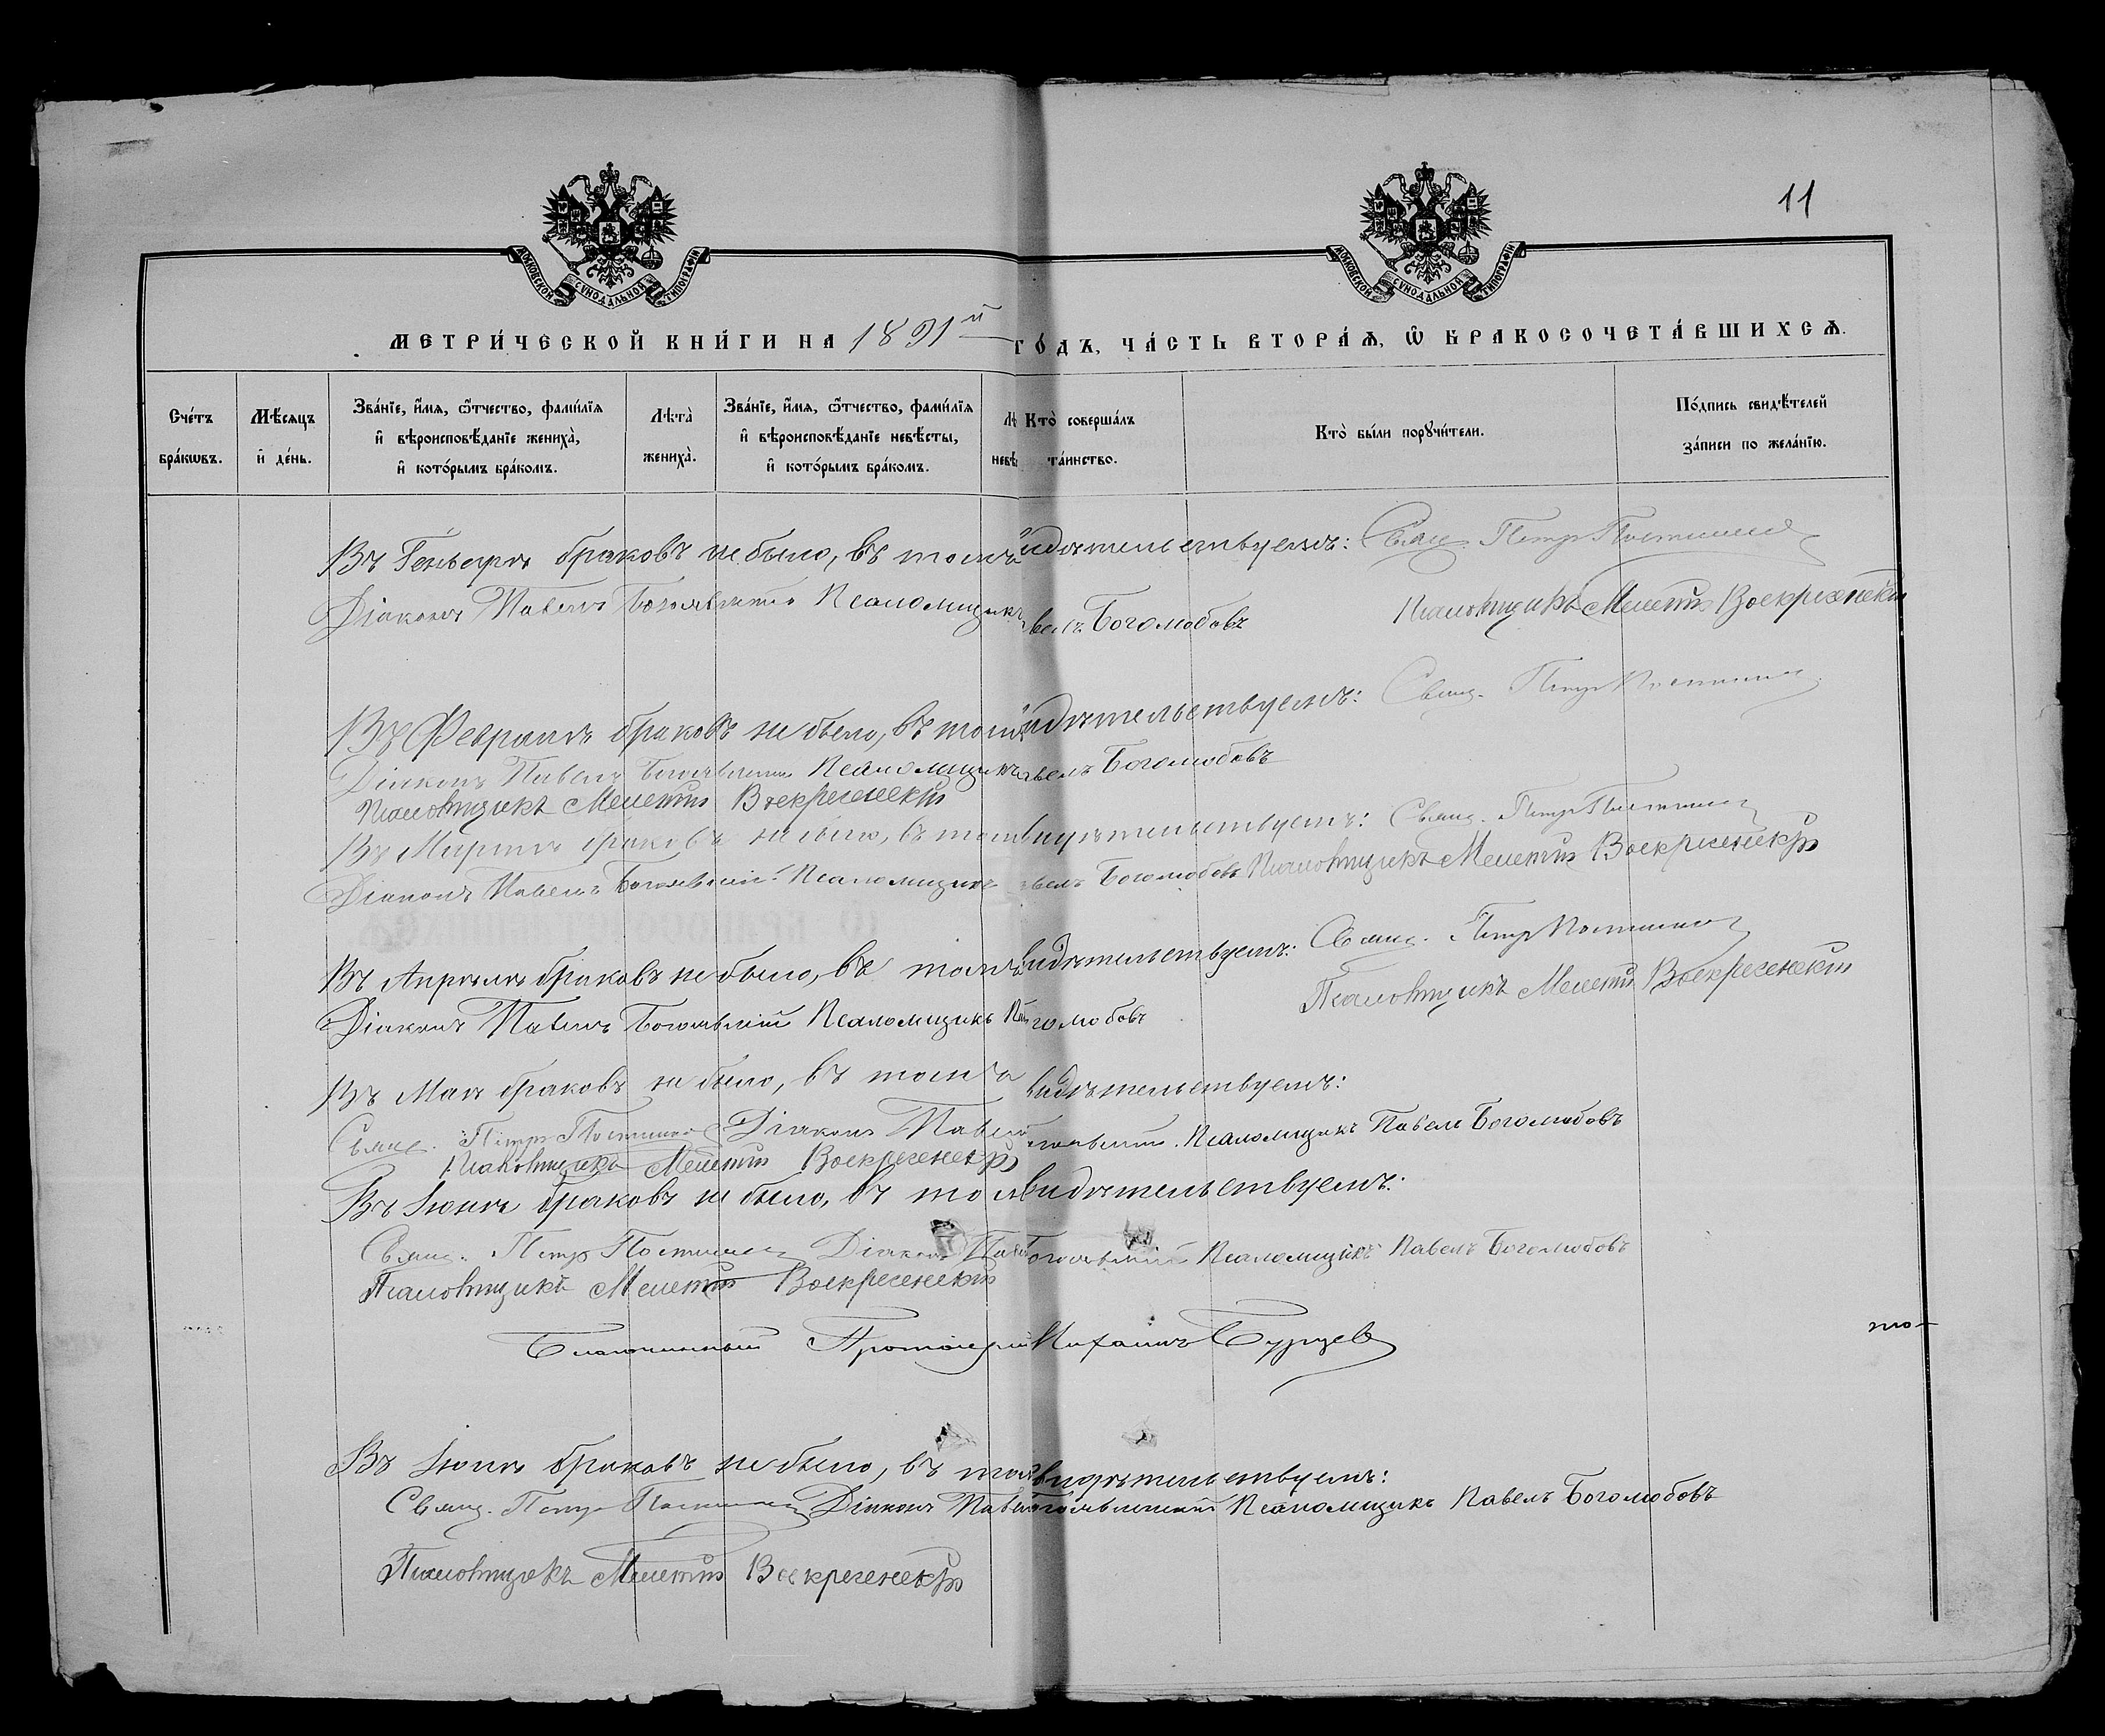 11
МОСКОВСКОЙ СУНОДАЛЬНОЙ ТИПОГРАФІИ
МОСКОВСКОЙ СУНОДАЛЬНОЙ ТИПОГРАФІИ
МЕТРИ́ЧЕСКОЙ КНИ́ГИ НА 1891й ГО́ДЪ, ЧА́СТЬ ВТОРА́Ѧ, Ѿ БРАКОСОЧЕТА́ВШИХСѦ.
Сче́тъ бра́кѡвъ.
Мѣ́сяцъ и҆ де́нь.
Зва́нїе, и҆́мѧ, ѻ҆́тчество, фами́лїѧ и҆ вѣроисповѣ́данїе жениха̀, и҆ кото́рымъ бра́комъ.
Лѣта̀ жениха̀.
Зва́нїе, и҆́мѧ, ѻ҆́тчество, фами́лїѧ и҆ вѣроисповѣ́данїе невѣ́сты, и҆ кото́рымъ бра́комъ.
Лѣ невѣ
Кто̀ соверша́лъ та́инство.
Кто̀ бы́ли порꙋчи́тели.
По́дпись свидѣ́телей за́писи по жела́нїю.
Въ Генварѣ браковъ не было, въ томъ видѣтельствуемъ: Свящ. Петръ
Діаконъ Павелъ Богоявленскій Псаломщикъ вслъ Боголюбовъ Псаломщикъ Мелетій Воскресенскій
Въ Февралѣ браковъ не было, въ томъ идѣтельствуемъ: Свящ. Петръ
Діаконъ Павелъ Богоявленскій Псаломщикъ авелъ Боголюбовъ
Псаломщикъ Мелетій Воскресенскій
Въ Мартѣ браковъ не было, въ томъ видѣтельствуемъ: Свящ. Петръ
Діаконъ Павелъ Богоявленскій Псаломщикъ авелъ Боголюбовъ Псаломщикъ Мелетій Воскресенскій
Въ Апрѣлѣ браковъ не было, въ томъ видѣтельствуемъ: Свящ. Петръ
Діаконъ Павелъ Богоявленскій Псаломщикъ голюбовъ Псаломщикъ Мелетій Воскресенскій
Въ Маѣ браковъ не было, въ томъ видѣтельствуемъ:
Свящ. Петръ Діаконъ Павелъ Псаломщикъ Павелъ Боголюбовъ
Псаломщикъ Мелетій Воскресенскій
Въ Іюнѣ браковъ не было, въ томъ видѣтельствуемъ:
Свящ. Петръ Діаконъ Богоявленскій Псаломщикъ Павелъ Боголюбовъ
Псаломщикъ Мелетій Воскресенскій
Благочинный Протоіерей Михаилъ Бурцев
Въ Іюлѣ браковъ не было, въ томъ видѣтельствуемъ:
Свящ. Петръ Діаконъ Павелъ Богоявленскій Псаломщикъ Павелъ Боголюбовъ
Псаломщикъ Мелетій Воскресенскій